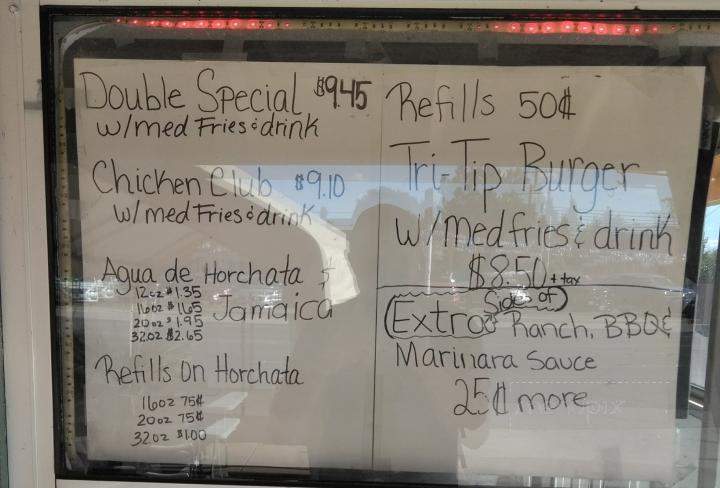 Double Special $9.45
w/med Fries & drink
Chicken Club $9.10
w/med Fries & drink
Agua de Horchata &
Jamaica
12oz $1.35
16oz $1.65
20oz $1.95
32oz $2.65
Refills on Horchata
16oz 75¢
20oz 75¢
32oz $1.00
Refills 50¢
Tri-Tip Burger
w/med fries & drink
$8.50 + tax
Sides of
Extra Ranch, BBQ &
Marinara Sauce
25¢ more